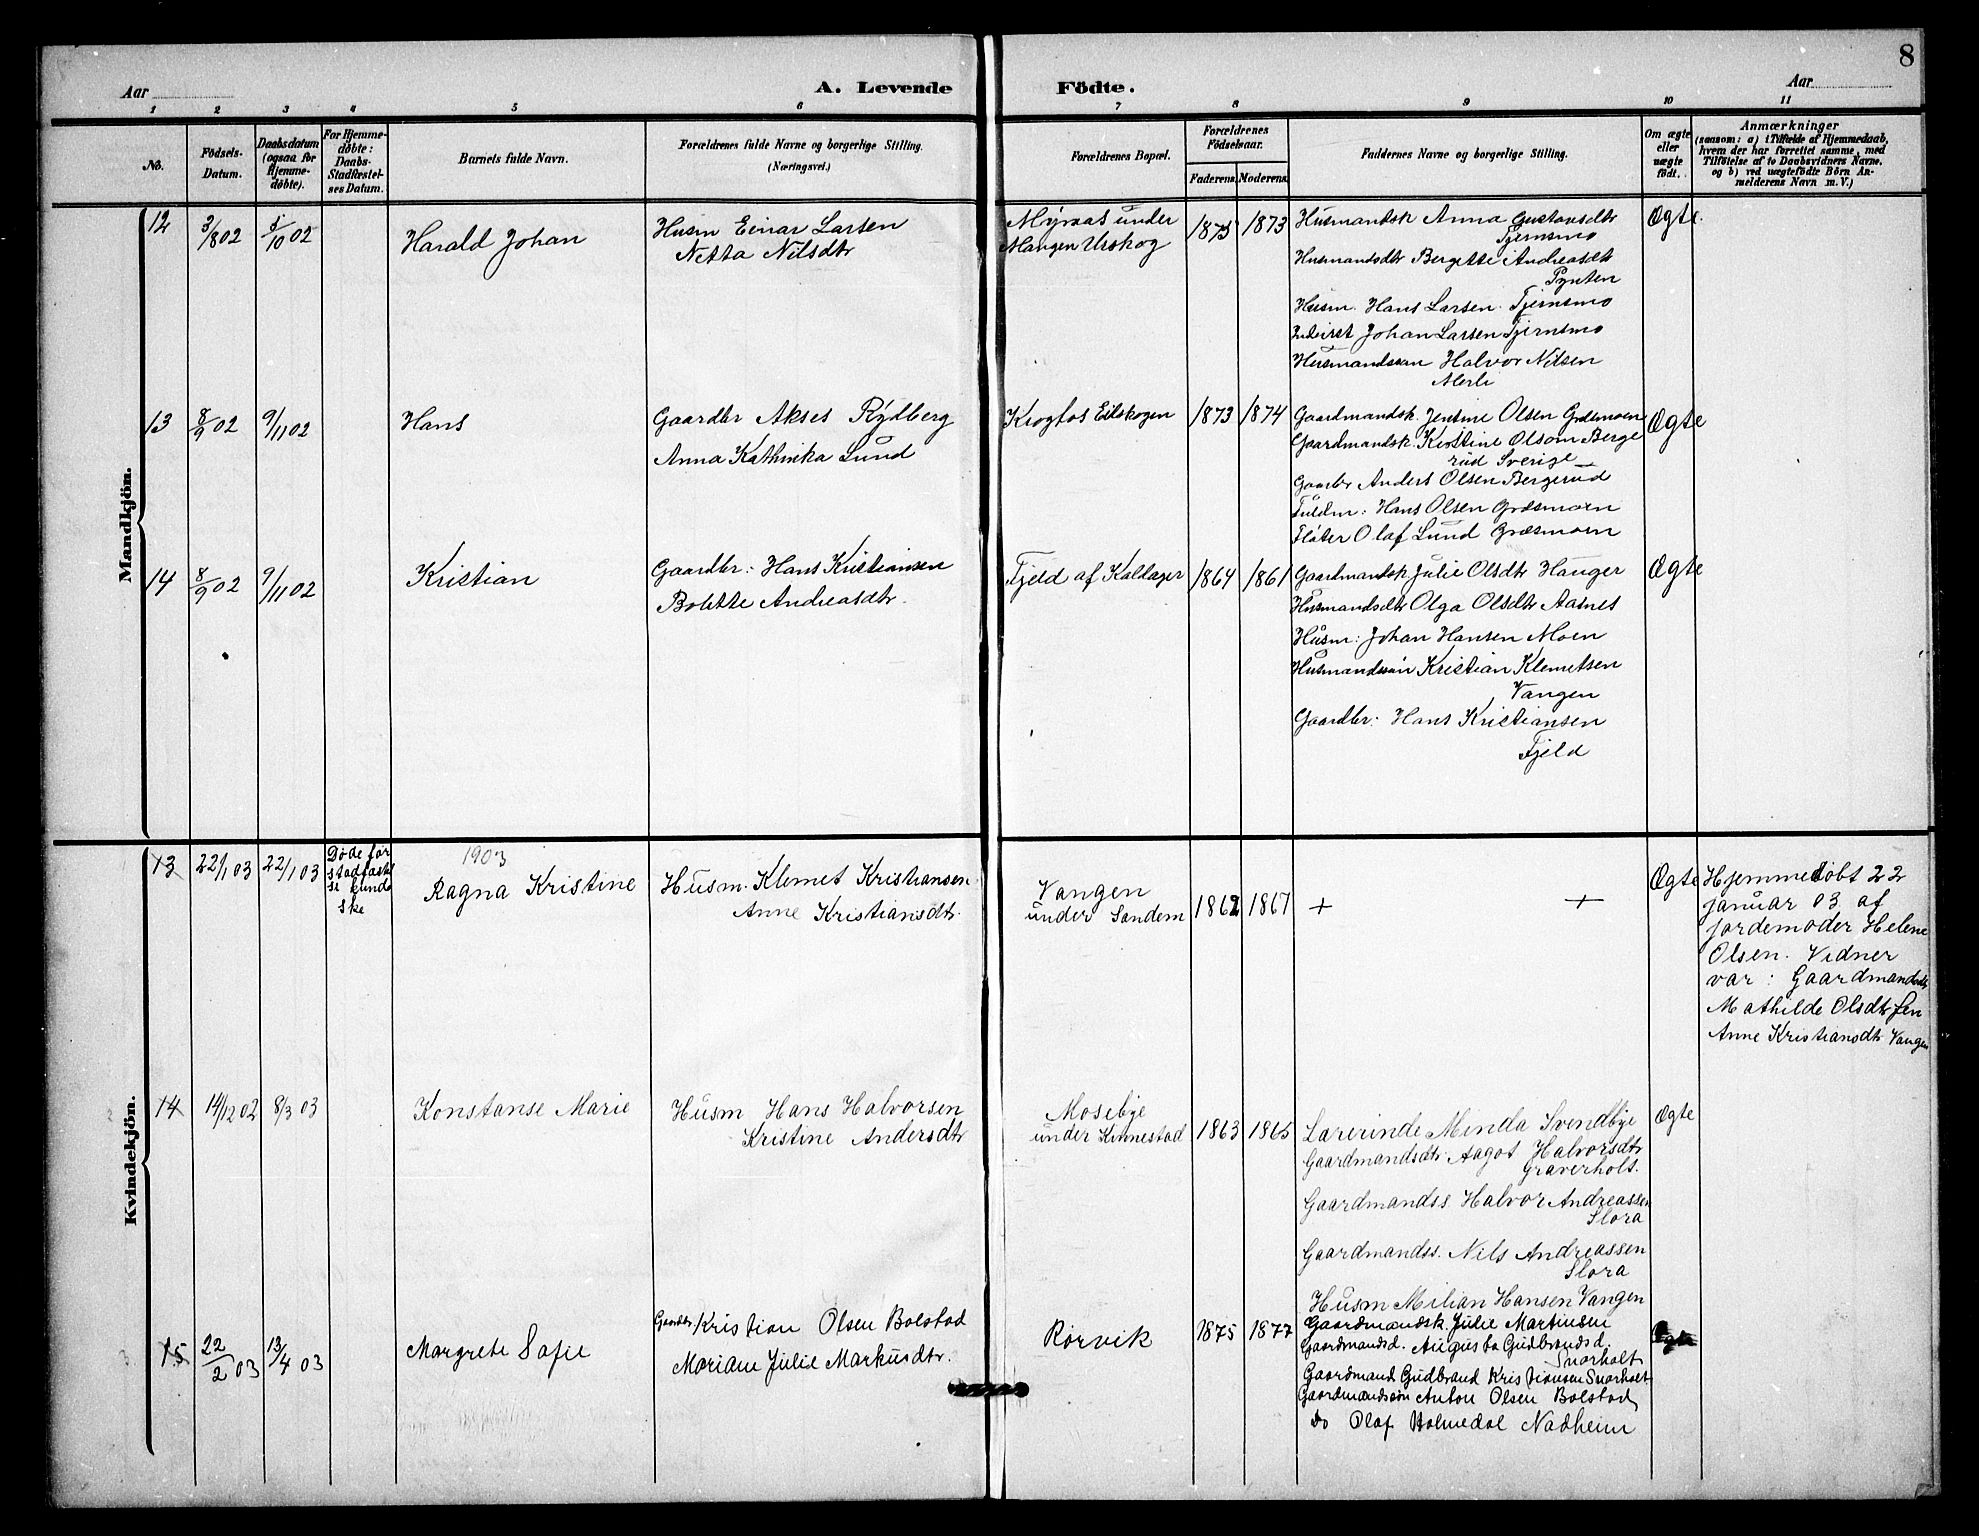 8
Aar
A. Levende
Födte.
Aar
1 2 3 4 5 6 7 8 9 10 11
No.
Födsels-
Datum.
Daabsdatum
(ogsaa for
Hjemme-
döbte).
For Hjemme-
döbte:
Daabs-
Stadfæstel-
ses Datum.
Barnets fulde Navn.
Forældrenes fulde Navne og borgerlige Stilling.
(Næringsvei.)
Forældrenes Bopæl.
Forældrenes
Födselsaar.
Faderens. Moderens.
Faddernes Navne og borgerlige Stilling.
Om ægte
eller
uægte
födt.
Anmærkninger
(saasom: a) i Tilfælde af Hjemmedaab,
hvem der har forrettet samme, med
Tilföielse af to Daabsvidners Navne,
og b) ved uægtefödte Börn An-
melderens Navn m. V.)
Mandkjön.
12
3/8 02
5/10 02
Harald Johan
Husm Einar Larsen
Netta Nilsdtr
Myraas under
Mangen Urskog
1875 1873
Husmandsk Anna Gustavsdtr
Tjernsmo
Husmandsdtr Bergitte Andreasdtr
Pynten
Husm. Hans Larsen Tjernsmo
Johan Larsen Tjernsmo
Husmandssøn Halvor Nilsen
Ægte.
13
8/9 02
9/11 02
Hans
Gaardbr Akses Rydberg
Anna Kathinka Lund
Krogfos Eidskogen
1873 1874
Gaardmandsk. Jensine Olsen Græsmoen
Gaardmandsk. Kristine Olsom Berge
rud Sverige
Gaardbr Anders Olsen Bergerud
Hans Olsen Græsmoen
Fløter Olaf Lund Græsmoen
Ægte
14
8/9 02
9/11 02
Kristian
Gaardbr: Hans Kristiansen
Bolette Andreasdtr.
Fjeld af Kaldager
1864 1861
Gaardmandsk Julie Olsdtr Hauger
Husmandsdtr Olga Olsdtr Aasnes
Husm: Johan Hansen Moen
Husmandssøn Kristian Klemetsen
Vangen
Gaardbr: Hans Kristiansen
Fjeld
Ægte
Kvindekjön.
13
22/1 03
22/1 03
Døde før
stadfæstel
se kunde
ske
1903
Ragna Kristine
Husm. Klemet Kristiansen
Anne Kristiansdtr.
Vangen
under Sandem
1862 1867
+ +
Ægte
Hjemmedøbt 22
januar 03 af
jordemoder Helene
Olsen. Vidner
var: Gaardmandsdtr
Mathilde Olsdtr Fen
Anne Kristiansdtr Vangen
14
14/12 02
8/3 03
Konstanse Marie
Husm Hans Halvorsen
Kristine Andersdtr
Mosebye
under Kinnestad
1863 1865
Lærerinde Minda Svendbye
Gaardmandsdtr Aagot Halvorsdtr
Graverholt.
Gaardmandss. Halvor Andreassen
Slora
Gaardmandss. Nils Andreassen
Slora
Husm Milian Hansen Vangen
Ægte
15
22/2 03
13/4 03
Margrete Sofie
Gaardbr Kristian Olsen Bolstad
Mariane Julie Markusdtr.
Rørvik
1875 1877
Gaardmandsk. Julie Martinsen
Gaardmandsd. Augusta Gudbrandsd.
Snorholt
Gaardmand Gudbrand Kristiansen Snorholt
Gaardmandssøn Anton Olsen Bolstad
Do Olaf Holmedal Nadheim
Ægte